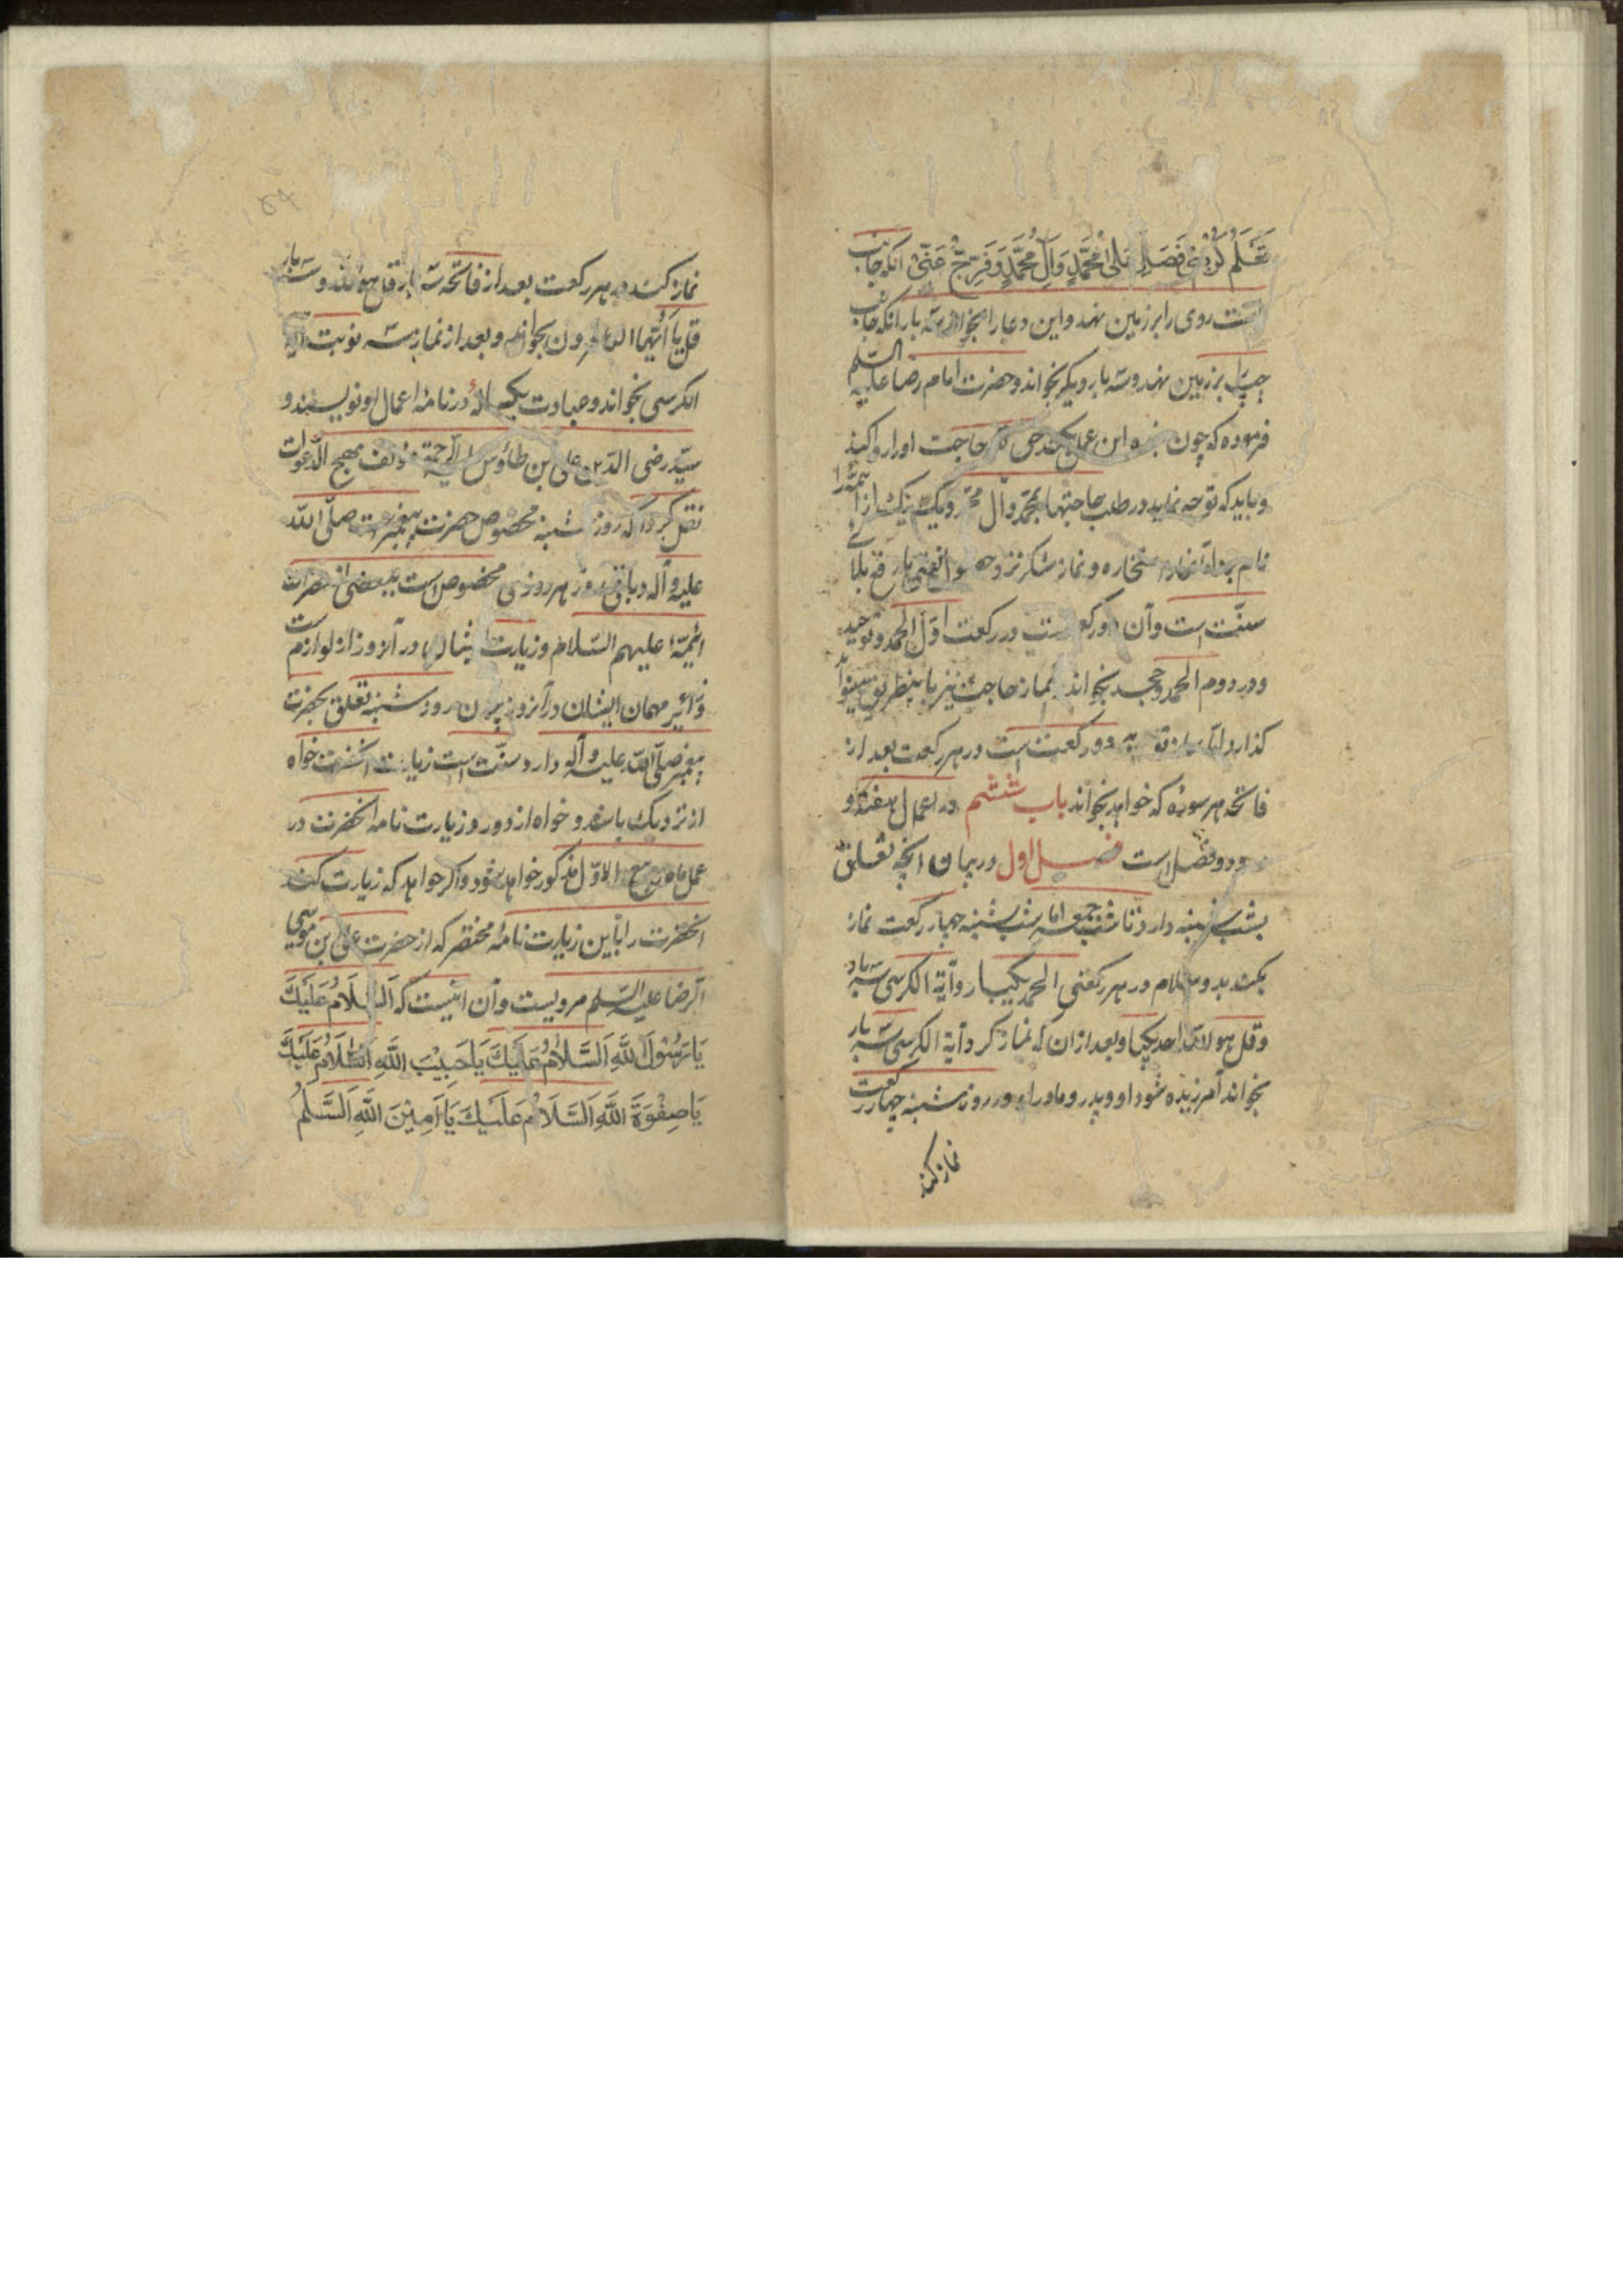 تَعْلَمُ كُرْبَتِي فَصَلِّ عَلىٰ مُحَمَّدٍ وَآلِ مُحَمَّدٍ وَفَرِّجْ عَنّی آنکه جانب
راست روی را بر زمین نهد و این دعا را بخواند سه بار آنکه جانب
چپ را بر زمین نهد و سه بار دیگر بخواند و حضرت امام رضا علیه السلم
فرموده که چون بنده این عمل بکند حق تعالی حاجت او را روا کند
و باید که توجه نماید در طلب حاجتها بمحمد و آل محمد و یک یک از ائمه را
نام برد و نماز استخاره و نماز شکر نزد حصول نعمتها یا رفع بلاها
سنّت است و آن دو رکعت است در رکعت اوّل الحمد و توحید
و در دوم الحمد و جحد بخواند نماز حاجت نیز باینطریق میتواند
گذارد امّا نماز توبه دو رکعت است در هر رکعت بعد از
فاتحه هر سورهٔ که خواهد بخواند باب ششم در اعمال هفته و
در و دو فصل است فصل اول در بیان آنچه تعلق
بشب شنبه دارد تا شب جمعه اما شب شنبه چهار رکعت نماز
بکند بدو سلام در هر رکعتی الحمد یکبار و آیة الکرسی سه بار
و قل هو الله احد یکبار و بعد از آن که نماز کرد آیة الکرسی سه بار
بخواند آمرزیده شود او و پدر و مادر او و در روز شنبه چهار رکعت
نماز کند
نماز کند در هر رکعت بعد از فاتحه سه بار قل هو الله و سه بار
قل یا اَیُّهَا الکافرون بخواند و بعد از نماز سه نوبت آیة
الکرسی بخواند و عبادت یکساله در نامهٔ اعمال او نویسند و
سیّد رضی الدّین علی بن طاوس علیه الرحمة مؤلف مهج الدّعوات
نقل کرده که روز شنبه مخصوص حضرت پیغمبر است صلّی الله
علیه و آله و باقی روز هر روزی مخصوص است ببعضی از حضرات
ائمّه علیهم السّلام و زیارت ایشان در آنروز از لوازم است
و زائر مهمان ایشان در آنروز چون روز شنبه تعلق بحضرت
پیغمبر صلّی الله علیه و آله دارد سنّت است زیارت آنحضرت خواه
از نزدیک باشد و خواه از دور و زیارت نامه آنحضرت در
عمل ماه ربیع الاوّل مذکور خواهد شد و اگر خواهد که زیارت کند
آنحضرت را باین زیارت نامهٔ مختصر که از حضرت علی بن موسی
الرضا علیه السّلم مرویست و آن اینست که اَلسَّلَامُ عَلَیْكَ
یَا رَسُوْلَ اللَّهِ اَلسَّلَامُ عَلَیْكَ یَا حَبِیْبَ اللَّهِ اَلسَّلَامُ عَلَیْكَ
یَا صِفْوَةَ اللَّهِ اَلسَّلَامُ عَلَیْكَ یَا اَمِیْنَ اللَّهِ اَلسَّلَمُ